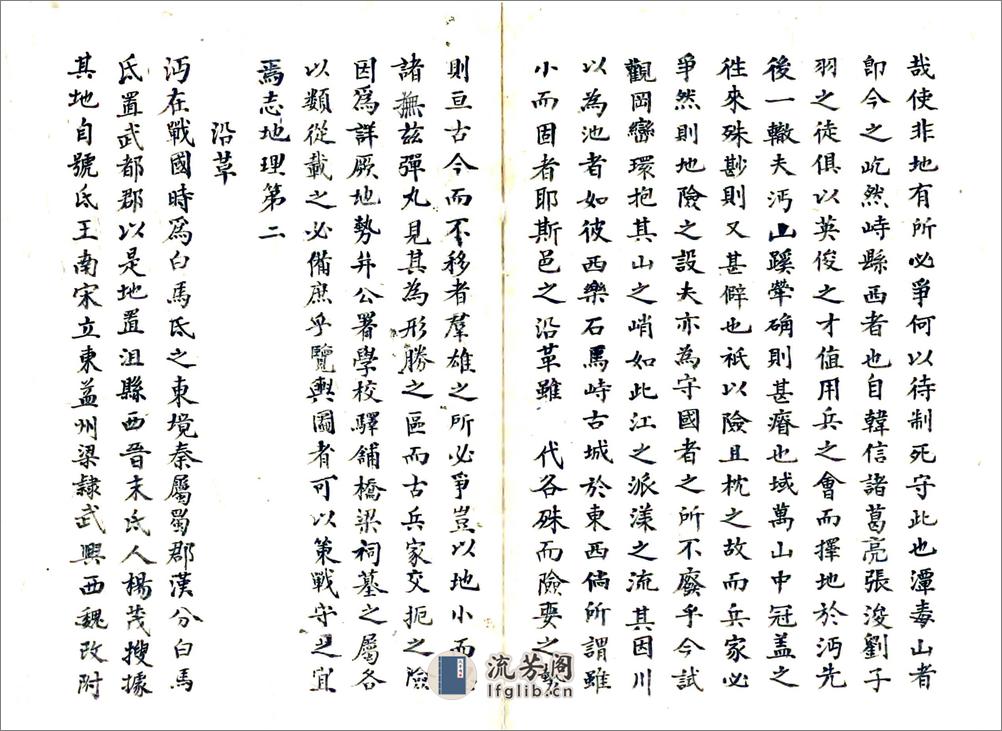 哉使非地有所必爭何以待制死守此也潭毒山者
卽今之屹然峙縣西者也自韓信諸葛亮張浚劉子
羽之徒俱以英俊之才值用兵之會而擇地於沔先
後一轍夫沔山蹊犖确則甚瘠也域萬山中冠盖之
徃來殊尠則又甚僻也祇以險且枕之故而兵家必
爭然則地險之設夫亦為守國者之所不廢乎今試
觀岡巒環抱其山之峭如此江之派漾之流其因川
以為池者如彼西樂石馬峙古城於東西倘所謂雖
小而固者耶斯邑之沿革雖 代各殊而險要之
則亘古今而不移者羣雄之所必爭豈以地小而
諸撫茲彈丸見其為形勝之區而古兵家交扼之險
因爲詳厥地勢并公署學校驛舖橋梁祠墓之屬各
以類從載之必備庶乎覽輿圖者可以策戰守之宜
焉志地理第二
沿革
沔在戰國時爲白馬氐之東境秦屬蜀郡漢分白馬
氐置武都郡以是地置沮縣西晉末氐人楊茂搜據
其地自號氐王南宋立東益州梁隸武興西魏改附
流芳阁
lfglib.cn